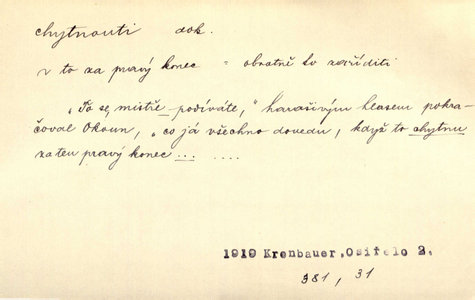 chytnouti dok.
v to za pravý konec = obratně to zaříditi
„To se, mistře podíváte," harašivým hlasem pokra-
čoval Okoun, „co já všechno dovedu, když to chytnu
za ten pravý konec ... ....
1919 Krenbauer, Osiřelo 2.
381, 31